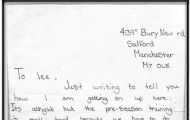 439ᴬ Bury New rd,
Salford
Manchester
M7 OLE
To lee,
Just writing to tell you
how I am getting on up here.
Its alright but the pre-season training
is well hard because we have to do